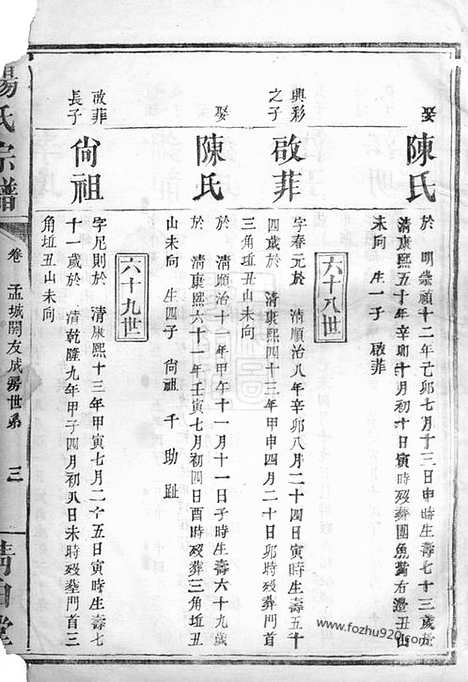 娶
陳氏
於 明崇禎十二年己卯七月十三日申時生壽七十三歲於
清康熙五十年辛卯十月初十日寅時歿葬團魚觜右邊丑山
未向 生一子 啟菲
六十八世
興彩
之子
啟菲
字春元於 清順治八年辛卯八月二十四日寅時生壽五十
四歲於 清康熙四十三年甲申四月二十日卯時歿葬
三角坵丑山未向
娶
陳氏
於 清順治十一年甲午十一月十一日子時生壽六十九歲
於 清康熙六十一年壬寅七月初四日酉時歿葬三角坵丑
山未向 生四子 尙祖 千 助 趾
六十九世
啟菲
長子
尙祖
字足則於 清康熙十三年甲寅七月二十五日寅時生壽七
十一歲於 清乾隆九年甲子四月初八日未時歿塟門首三
角坵丑山未向
楊氏宗譜
卷
孟城開友成房世系
三
清白堂
www.fozhu920.com